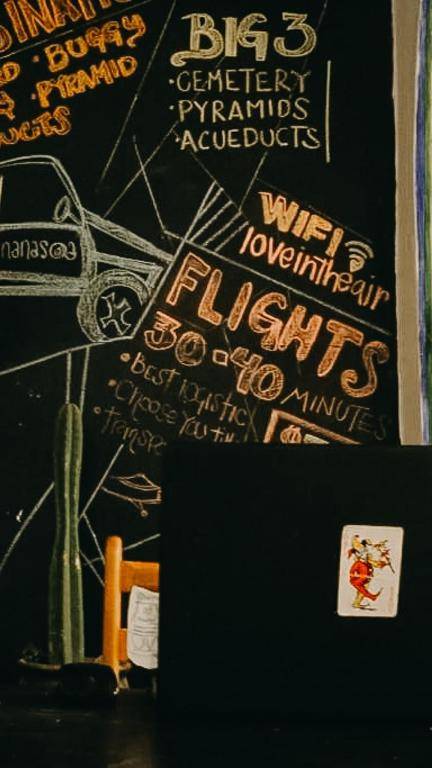 BUGGY
PYRAMID
BIG 3
·CEMETERY
·PYRAMIDS
·ACUEDUCTS
WIFI
loveintheair
FLIGHTS
30-40 MINUTES
·BEST logistic
·Choose You
nanasca